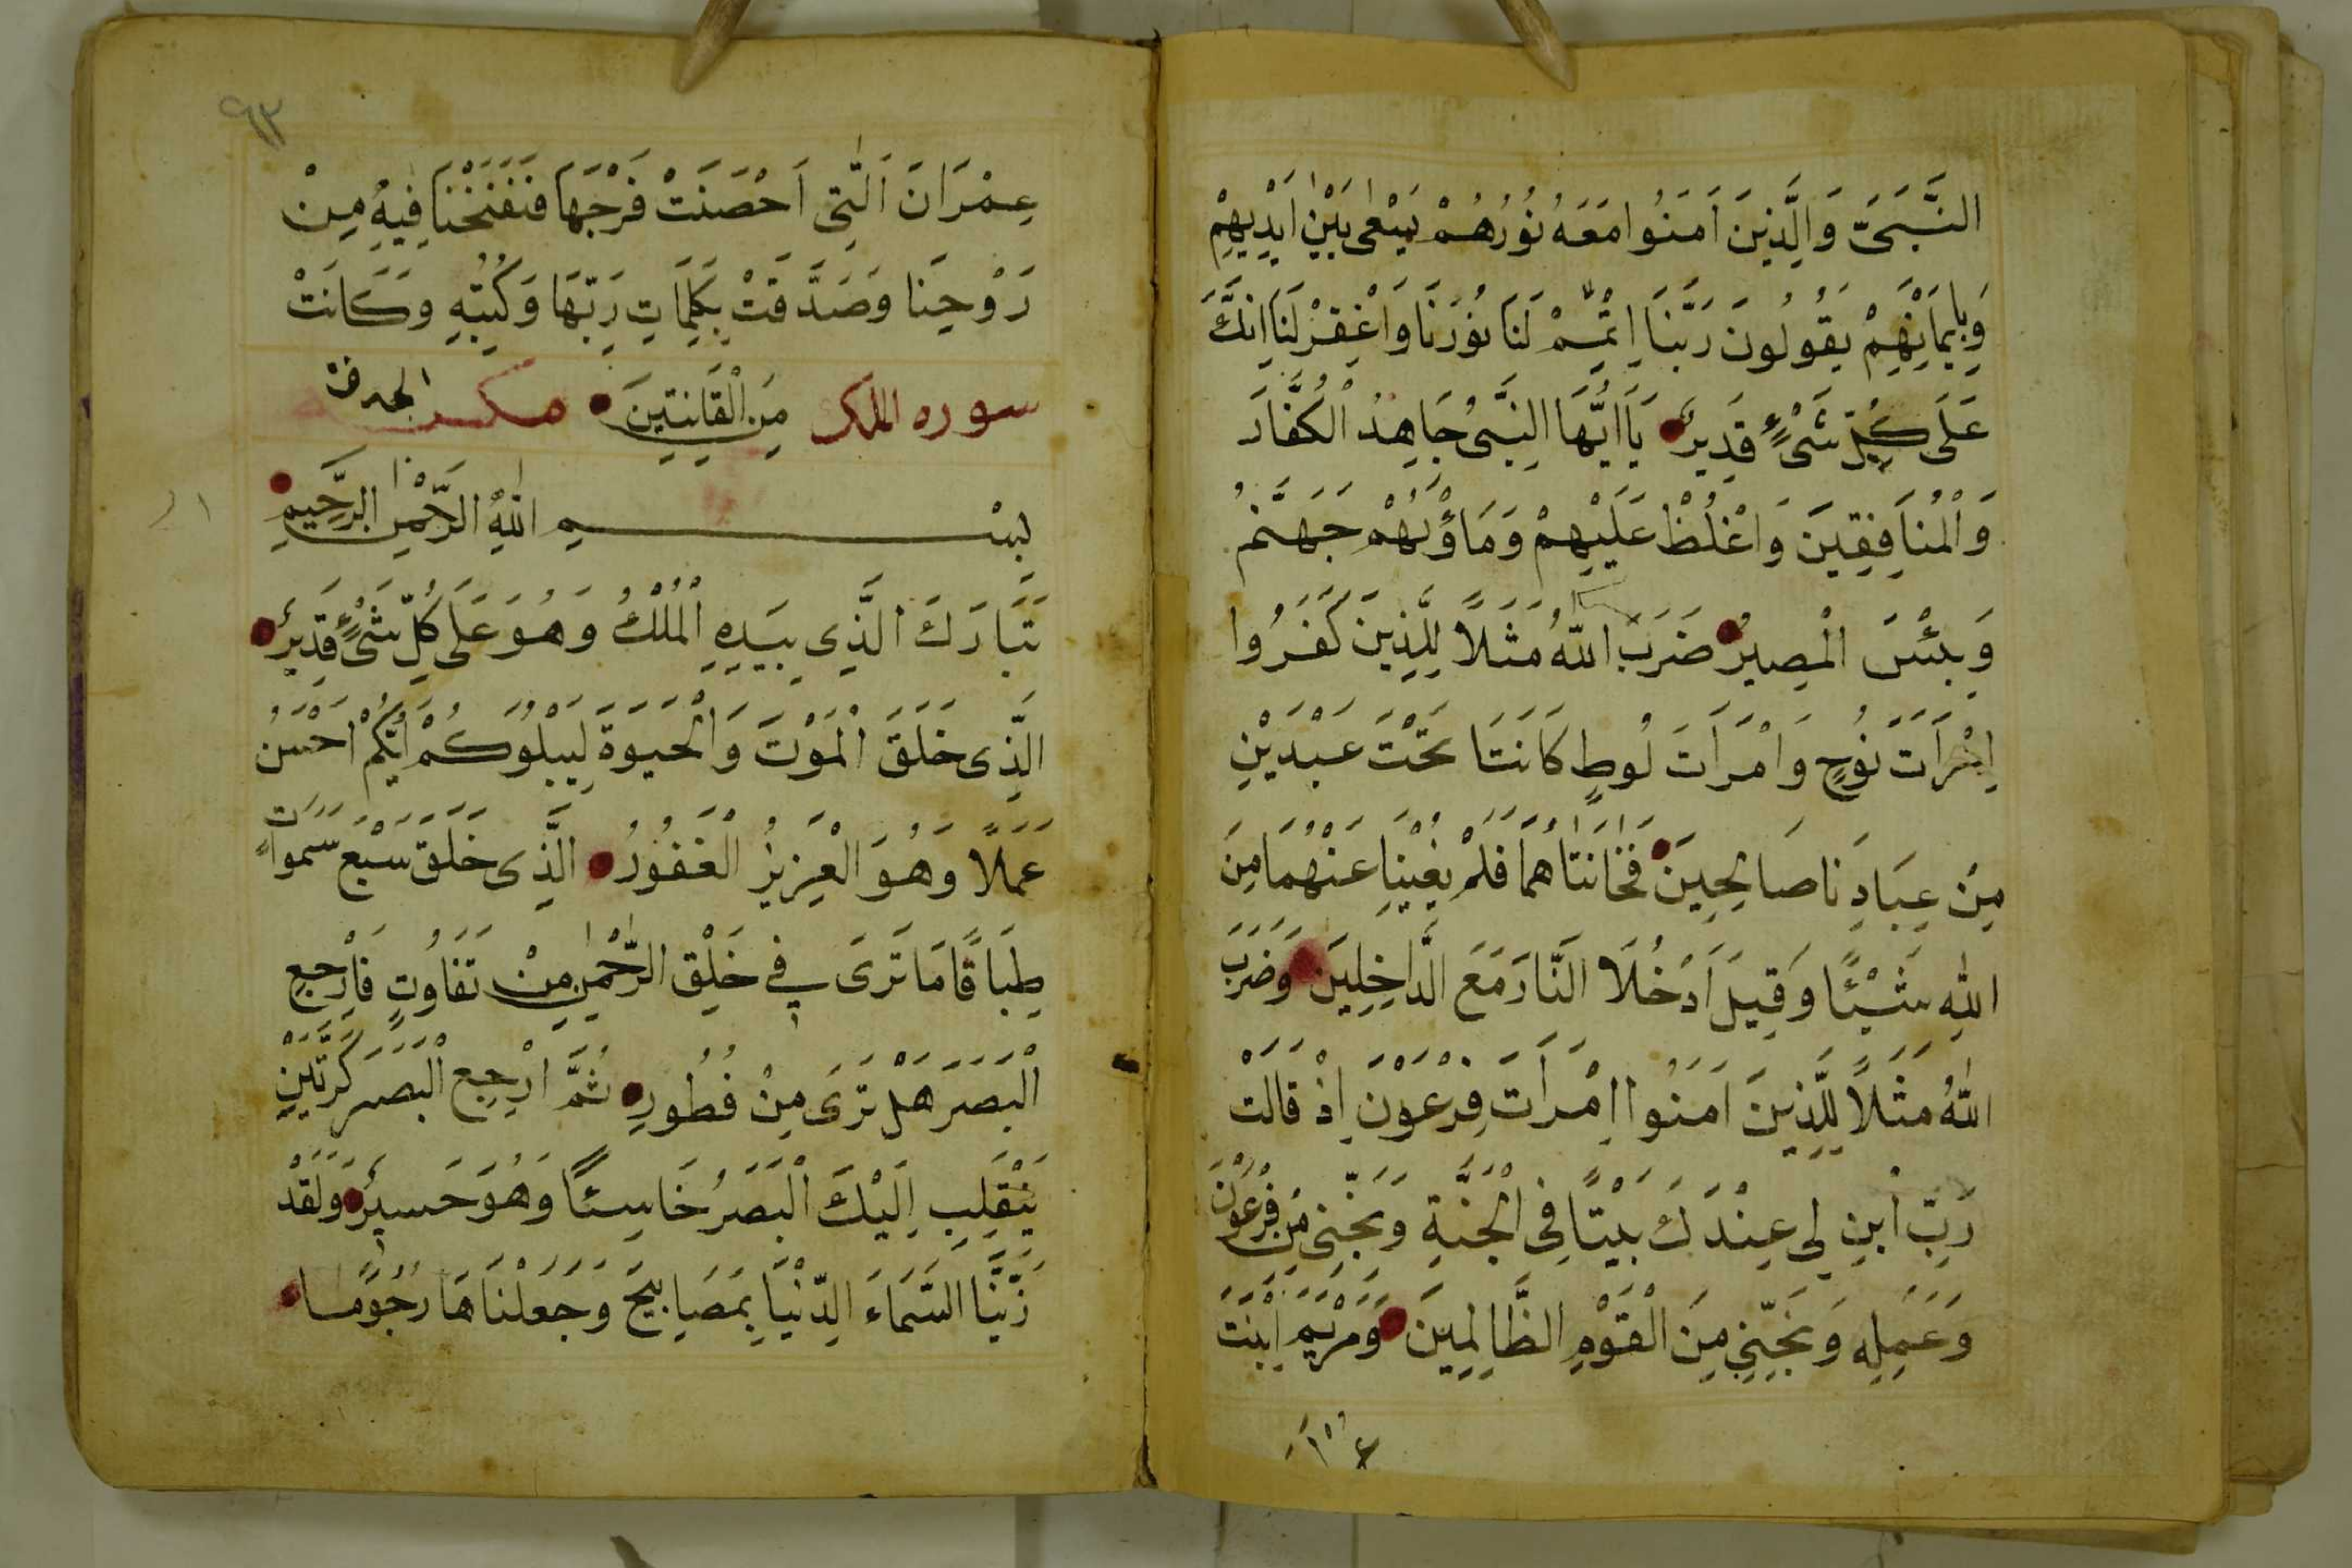 النَّبِىَّ وَالَّذِينَ اَمَنُوا مَعَهُ نُورُهُمْ يَسْعٰى بَيْنَ اَيْدِيهِمْ
وَبِاَيْمَانِهِمْ يَقُولُونَ رَبَّنَا اَتْمِمْ لَنَا نُورَنَا وَاغْفِرْ لَنَا اِنَّكَ
عَلَى كُلِّ شَىْءٍ قَدِيرٌ يَا اَيُّهَا النَّبِىُّ جَاهِدُ الْكُفَّارَ
وَالْمُنَافِقِينَ وَاغْلُظْ عَلَيْهِمْ وَمَاْوٰيهُمْ جَهَنَّمُ
وَبِئْسَ الْمَصِيرُ ضَرَبَ اللّٰهُ مَثَلًا لِلَّذِينَ كَفَرُوا
امْرَاَتَ نُوحٍ وَامْرَاَتَ لُوطٍ كَانَتَا تَحْتَ عَبْدَيْنِ
مِنْ عِبَادِنَا صَالِحِينَ فَخَانَتَاهُمَا فَلَمْ يُغْنِيَا عَنْهُمَا مِنَ
اللّٰهِ شَيْئًا وَقِيلَ ادْخُلَا النَّارَ مَعَ الدَّاخِلِينَ وَضَرَبَ
اللّٰهُ مَثَلًا لِلَّذِينَ اَمَنُوا امْرَاَتَ فِرْعَوْنَ اِذْ قَالَتْ
رَبِّ ابْنِ لِى عِنْدَكَ بَيْتًا فِى الْجَنَّةِ وَنَجِّنِى مِنْ فِرْعَوْنَ
وَعَمَلِهِ وَنَجِّنِى مِنَ الْقَوْمِ الظَّالِمِينَ وَمَرْيَمَ ابْنَتَ
٩٣
عِمْرَانَ الَّتِى اَحْصَنَتْ فَرْجَهَا فَنَفَخْنَا فِيهِ مِنْ
رُوْحِنَا وَصَدَّقَتْ بِكَلِمَاتِ رَبِّهَا وَكُتُبِهِ وَكَانَتْ
سوره الملك مِنَ الْقَانِتِينَ
بِسْمِ اللّٰهِ الرَّحْمٰنِ الرَّحِيمِ
تَبَارَكَ الَّذِى بِيَدِهِ الْمُلْكُ وَهُوَ عَلَى كُلِّ شَىْءٍ قَدِيرٌ
الَّذِى خَلَقَ الْمَوْتَ وَالْحَيٰوةَ لِيَبْلُوَكُمْ اَيُّكُمْ اَحْسَنُ
عَمَلًا وَهُوَ الْعَزِيزُ الْغَفُورُ الَّذِى خَلَقَ سَبْعَ سَمٰوَاتٍ
طِبَاقًا مَا تَرَى فِى خَلْقِ الرَّحْمٰنِ مِنْ تَفَاوُتٍ فَارْجِعِ
الْبَصَرَ هَلْ تَرَى مِنْ فُطُورٍ ثُمَّ ارْجِعِ الْبَصَرَ كَرَّتَيْنِ
يَنْقَلِبْ اِلَيْكَ الْبَصَرُ خَاسِئًا وَهُوَ حَسِيرٌ وَلَقَدْ
زَيَّنَّا السَّمَاءَ الدُّنْيَا بِمَصَابِيحَ وَجَعَلْنَاهَا رُجُومًا